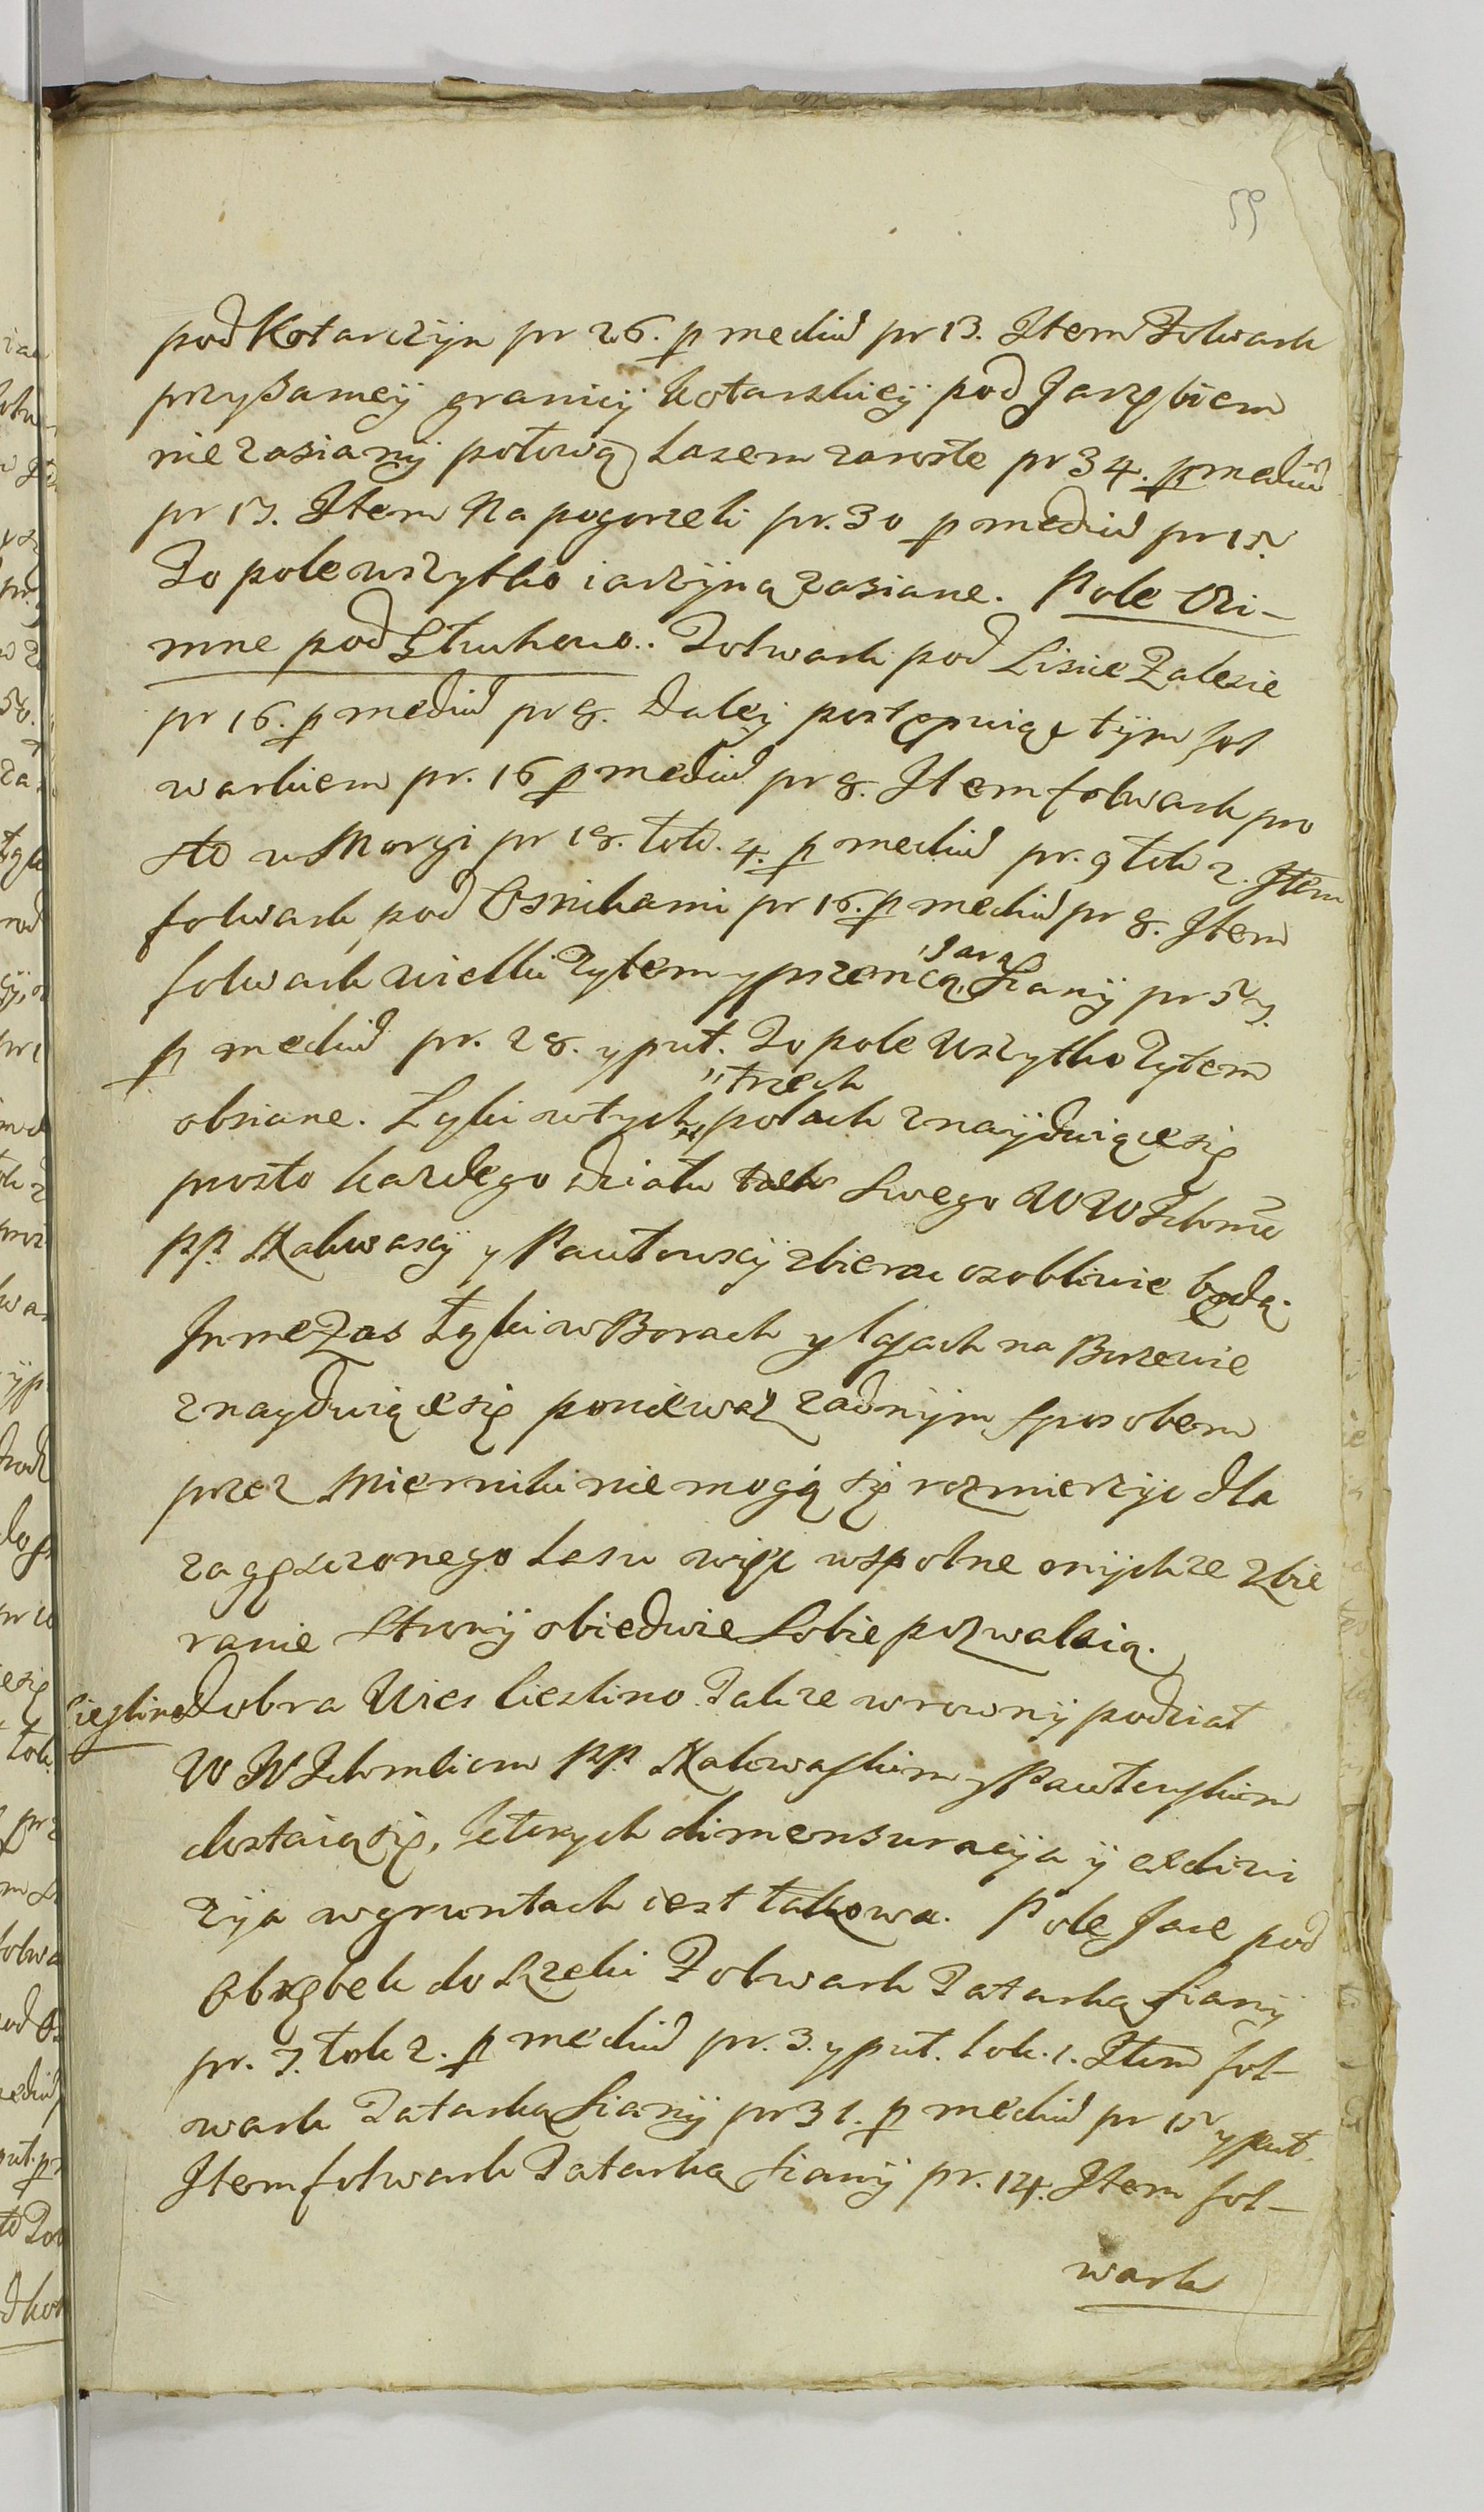 59
pod Kotarczyn pr 26. p mediu pr 13. Item Folwark
przy samey granicy kotarskiey pod Jarzębiem
nie zasiany połową Lasem zarosłe pr 34. p mediu
pr 17. Item Na pogorzeli pr. 30 p mediu pr 15.
To pole wszytko iarzyną zasiane. Pole Ozi-
mne pod Głuchowo. Folwark pod Lisie Zalesie
pr 16. p mediu pr 8. Daley postępuiąc tym fol
warkiem pr. 16 p mediu pr 8. Item folwark pro
sto u Morgi pr 18. łok. 4. p mediu pr. 9 łok 2. Item
folwark pod Osnikami pr 16. p mediu pr 8. Item
folwark wielki Zytem y przenicą Jarą siany pr 57.
p mediu pr. 28. y puł. To pole wszytko Zytem
obsiane. Łyki w tych trzech polach znayduiące się
prosto kazdego działu swego WW Ichmć
PP. Kalwascy y Pawłowscy zbierac osobliwie będą.
Inne Zas Łyki w Borach y lasach na Burzewie
znayduiące się poniewaz zadnym sposobem
przez Miernika nie mogą się rozmierzyc dla
zagęszczonego Lasu więc wspolne onychze zbie
ranie Strony obiedwie Sobie pozwalaią.
Cieslino Dobra Wies Cieslino Takze w rowny podział
W W Ichmciom PP. Kalwaskim y Pawłowskim
dostaią się, ktorych dimensuracya y exdiwi
zya w gruntach iest takowa. Pole Jare pod
Obrębek do Rzeki Folwark Tatarką siany
pr. 7. łok 2. p mediu pr. 3. y puł. łok. 1. Item fol-
wark Tatarką siany pr 31. p mediu pr 15 y puł.
Item folwark Tatarką siany pr. 14. Item fol-
wark